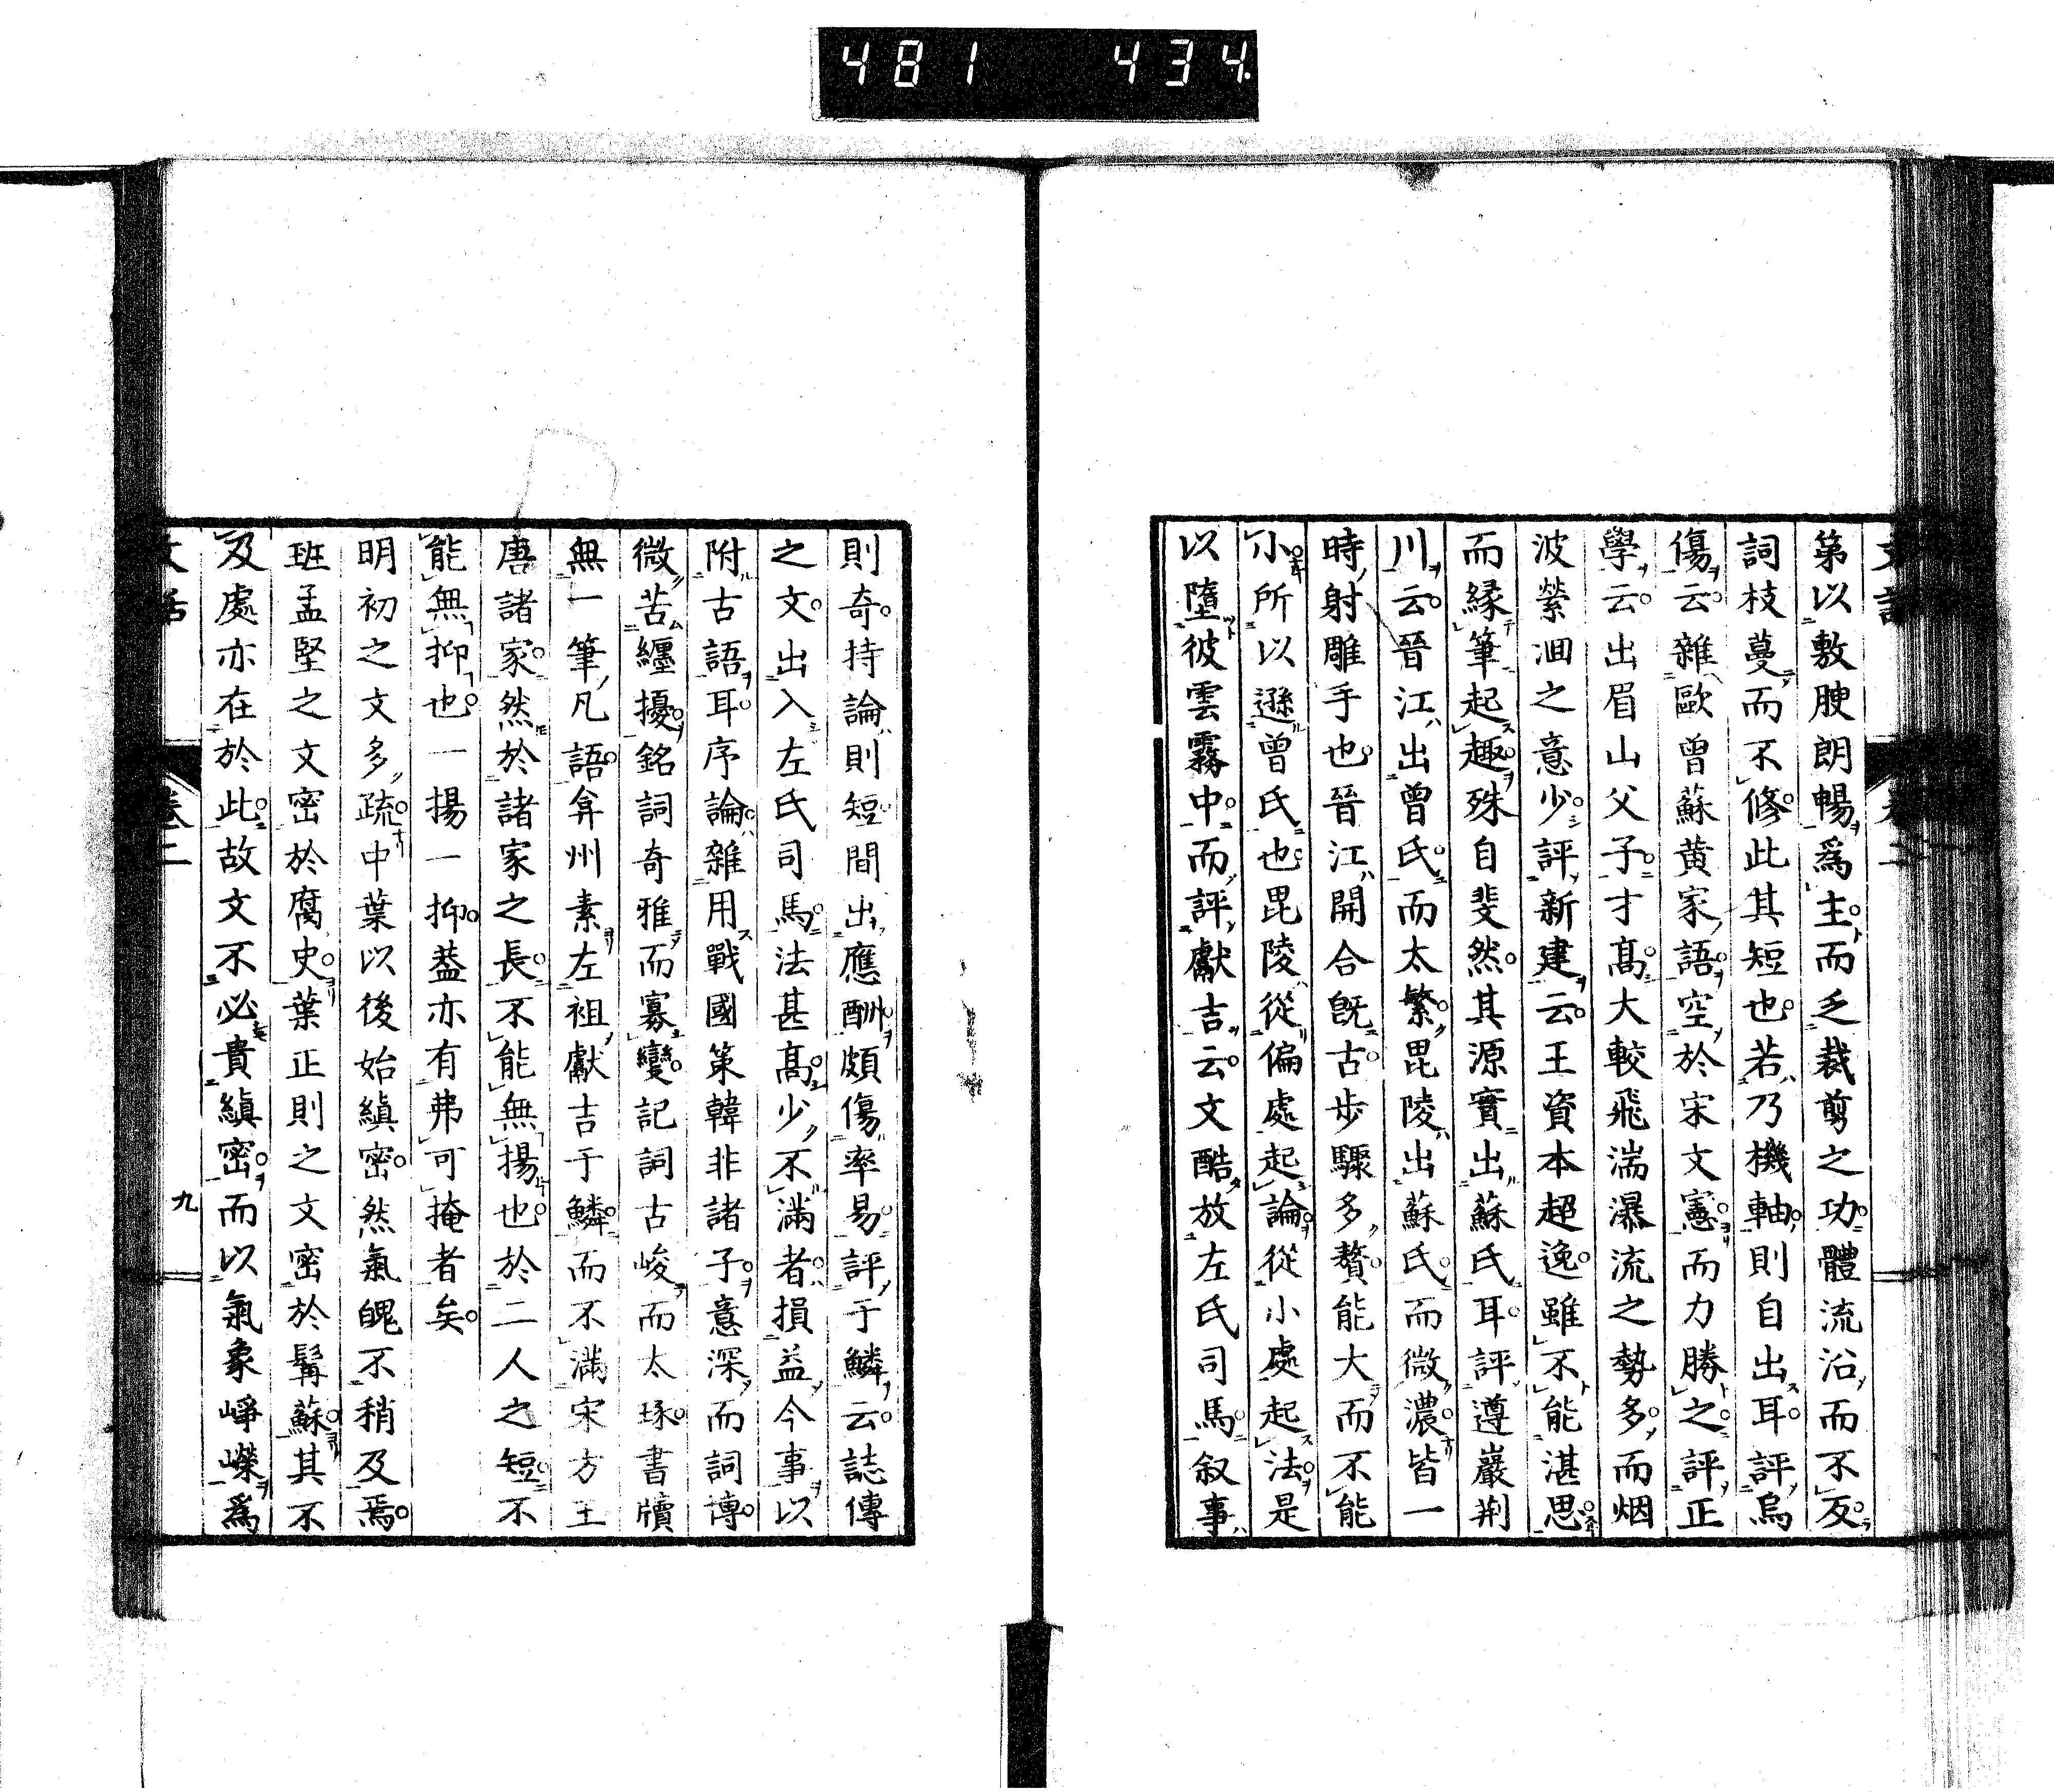 481 434
第以敷腴朗暢爲主而乏裁剪之功體流沿而不反
詞枝蔓而不修此其短也若乃機軸則自出耳評烏
傷云雜歐曾蘇黃家語空於宋文憲而力勝之評正
學云出眉山父子才高大較飛湍瀑流之勢多而烟
波縈洄之意少評新建云王資本超逸雖不能湛思
而緣筆起趣殊自斐然其源實出蘇氏耳評遵巖荆
川云晉江出曾氏而太繁毘陵出蘇氏而微濃皆一
時射雕手也晉江開合既古步驟多贅能大而不能
小所以遜曾氏也毘陵從偏處起論從小處起法是
以墮彼雲霧中而評獻吉云文酷放左氏司馬叙事
則奇持論則短間出應酬頗傷率易評于鱗云誌傳
之文出入左氏司馬法甚高少不滿者損益今事以
附古語耳序論雜用戰國策韓非諸子意深而詞傳
微苦纏擾銘詞奇雅而寡變記詞古峻而太琢書牘
無一筆凡語弇州素左袒獻吉于鱗而不滿宋方王
唐諸家然於諸家之長不能無揚也於二人之短不
能無抑也一揚一抑葢亦有弗可掩者矣
明初之文多疏中葉以後始縝密然氣魄不稍及焉
班孟堅之文密於腐史葉正則之文密於髯蘇其不
及處亦在於此故文不必貴縝密而以氣象崢嶸爲
文話 卷二 九